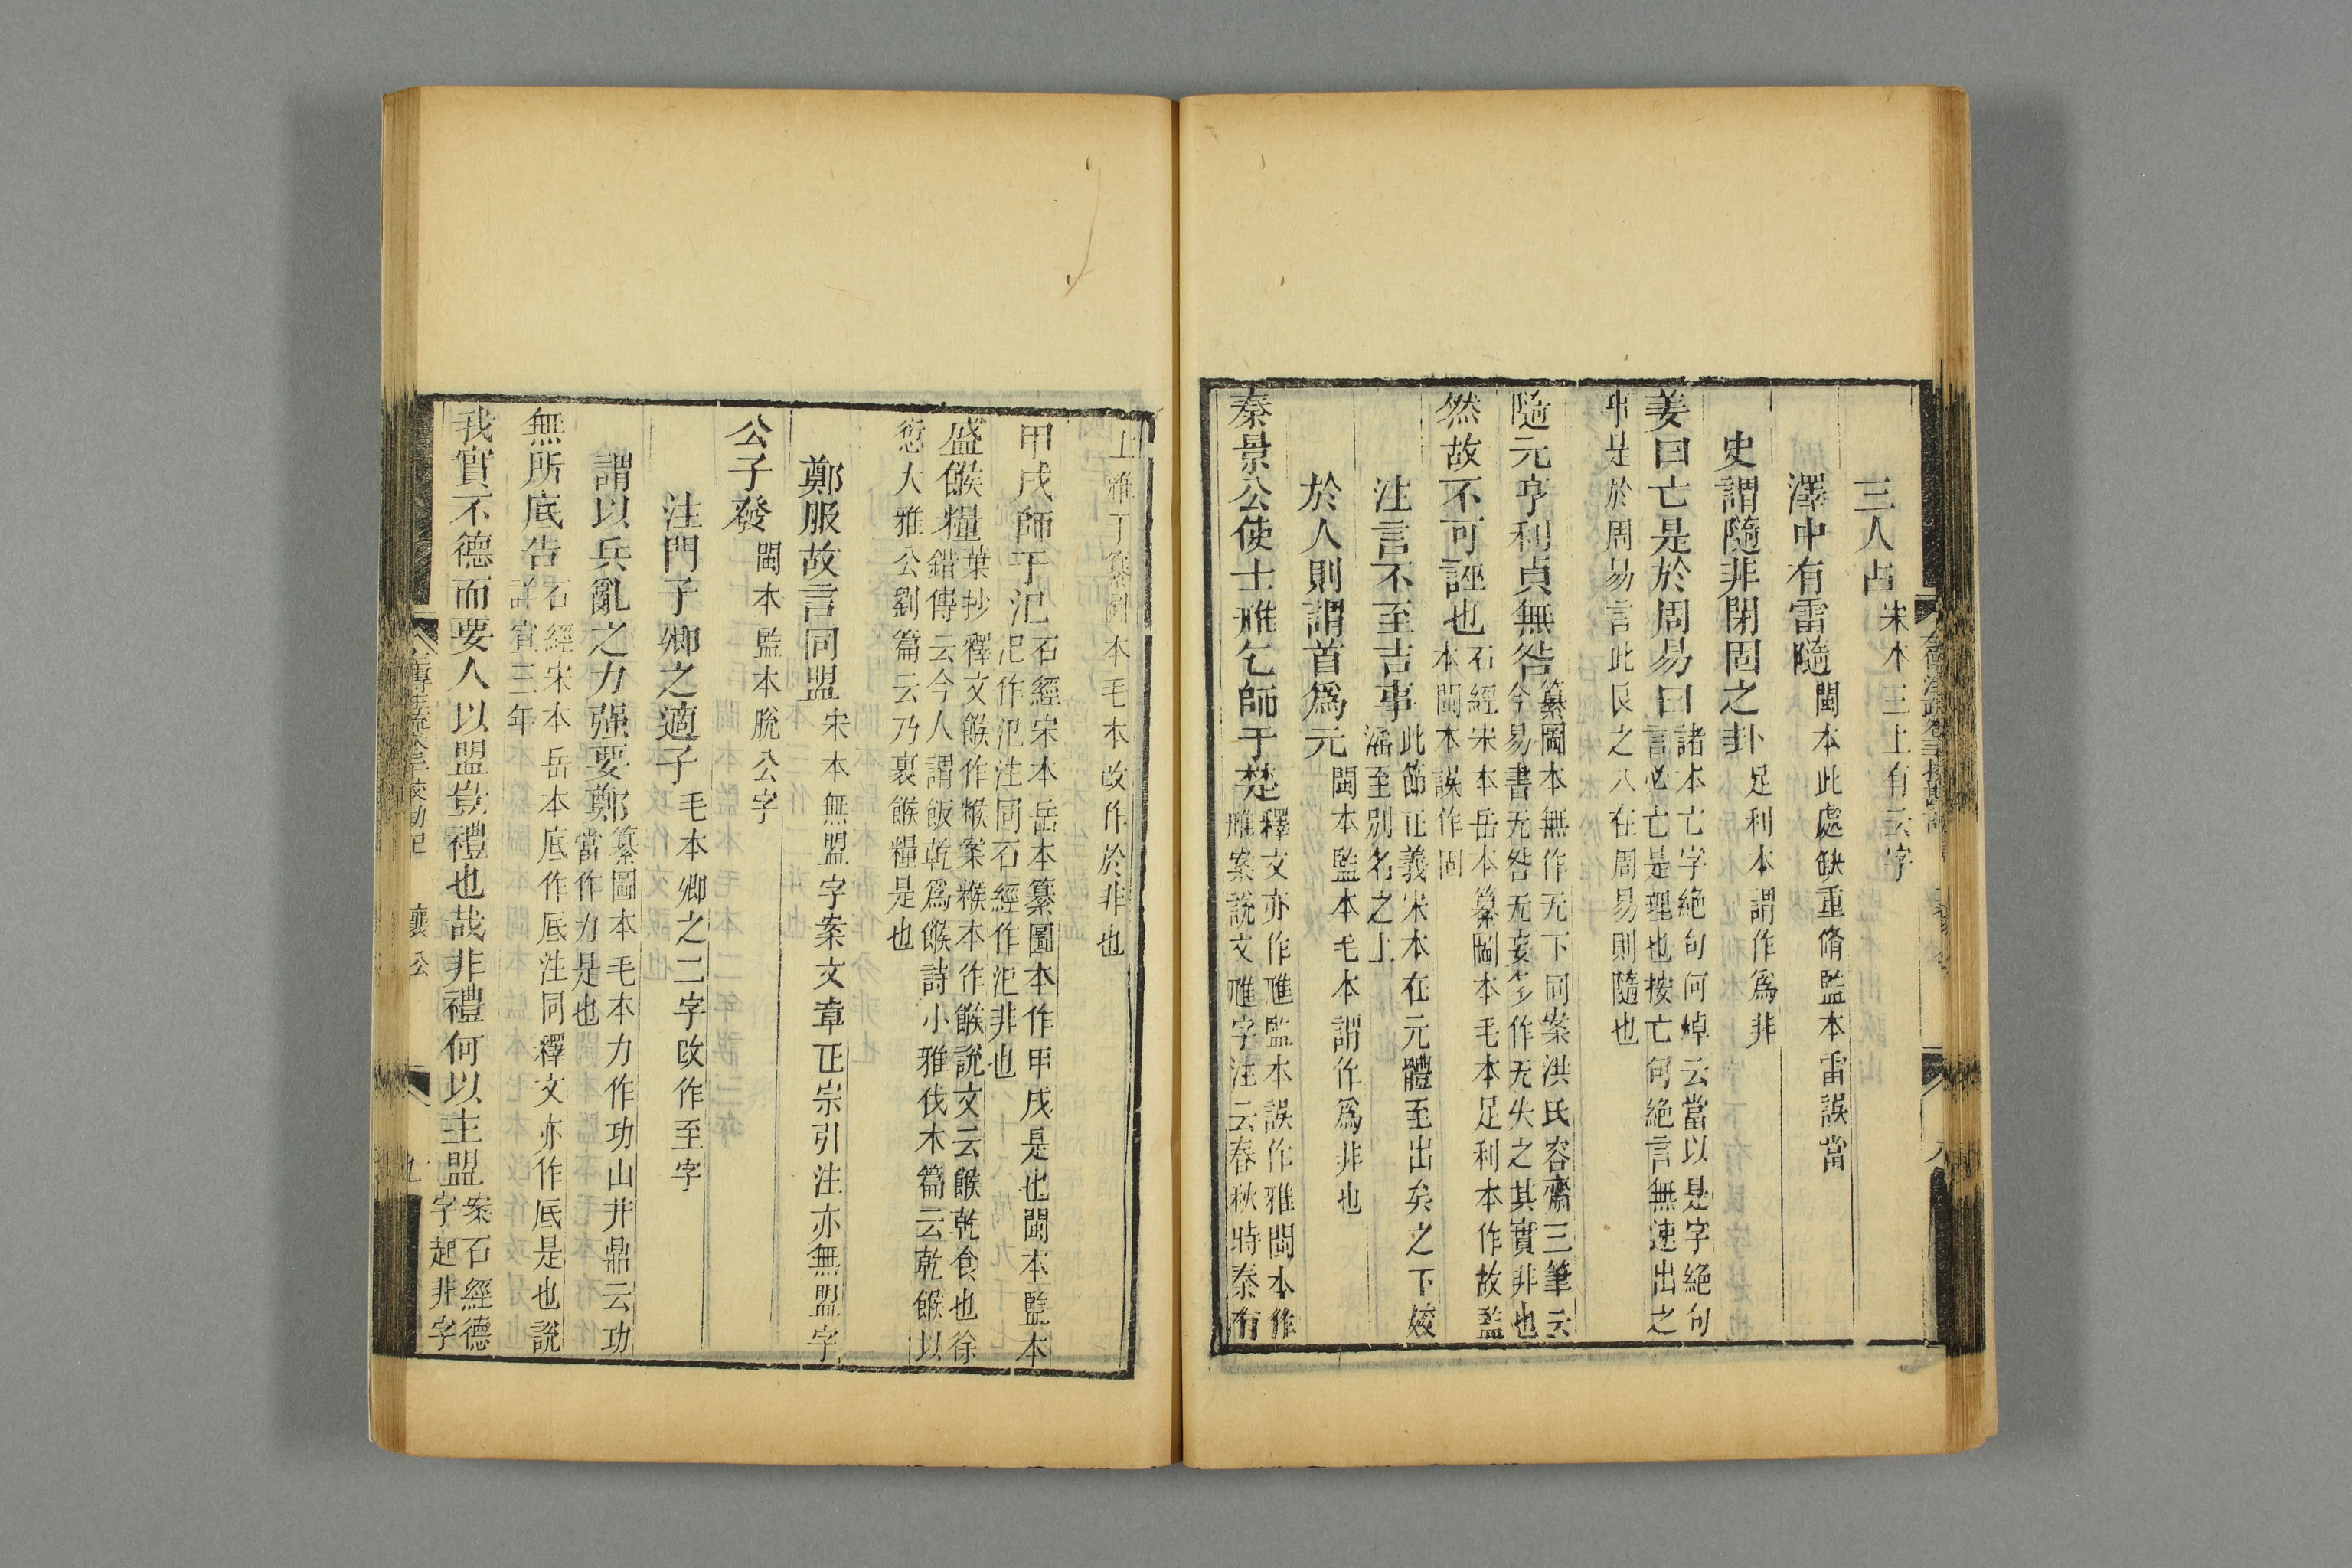 三人占宋本三上有云字
澤中有雷隨閩本此處缺重脩監本雷誤當
史謂隨非閉固之卦足利本謂作爲非
姜曰亡是於周易曰諸本亡字絶句何焯云當以是字絶句
言必亡是理也按亡句絶言無速出之
事是於周易言此艮之八在周易則隨也
隨元亨利貞無咎纂圖本無作无下同案洪氏容齋三筆云
今易書无咎无妄多作无失之其實非也
然故不可誣也石經宋本岳本纂圖本毛本足利本作故監
本閩本誤作固
注言不至吉事此節正義宋本在元體至出矣之下姣
淫至別名之上
於人則謂首爲元閩本監本毛本謂作爲非也
秦景公使士雃乞師于楚釋文亦作雃監本誤作雅閩本作
雃案說文雃字注云春秋時秦有
士雃丁纂圖本毛本改作於非也
甲戌師于氾石經宋本岳本纂圖本作甲戌是也閩本監本
氾作汜注同石經作汜非也
盛餱糧葉抄釋文餱作糇案糇本作餱說文云餱乾食也徐
鍇傳云今人謂飯乾爲餱詩小雅伐木篇云乾餱以
愆大雅公劉篇云乃裹餱糧是也
鄭服故言同盟宋本無盟字案文章正宗引注亦無盟字
公子發閩本監本脫公字
注門子卿之適子毛本卿之二字改作至字
謂以兵亂之力强要鄭纂圖本毛本力作功山井鼎云功
當作力是也
無所厎告石經宋本岳本底作厎注同釋文亦作厎是也說
詳宣三年
我實不德而要人以盟豈禮也哉非禮何以主盟案石經德
字起非字
襄公
九